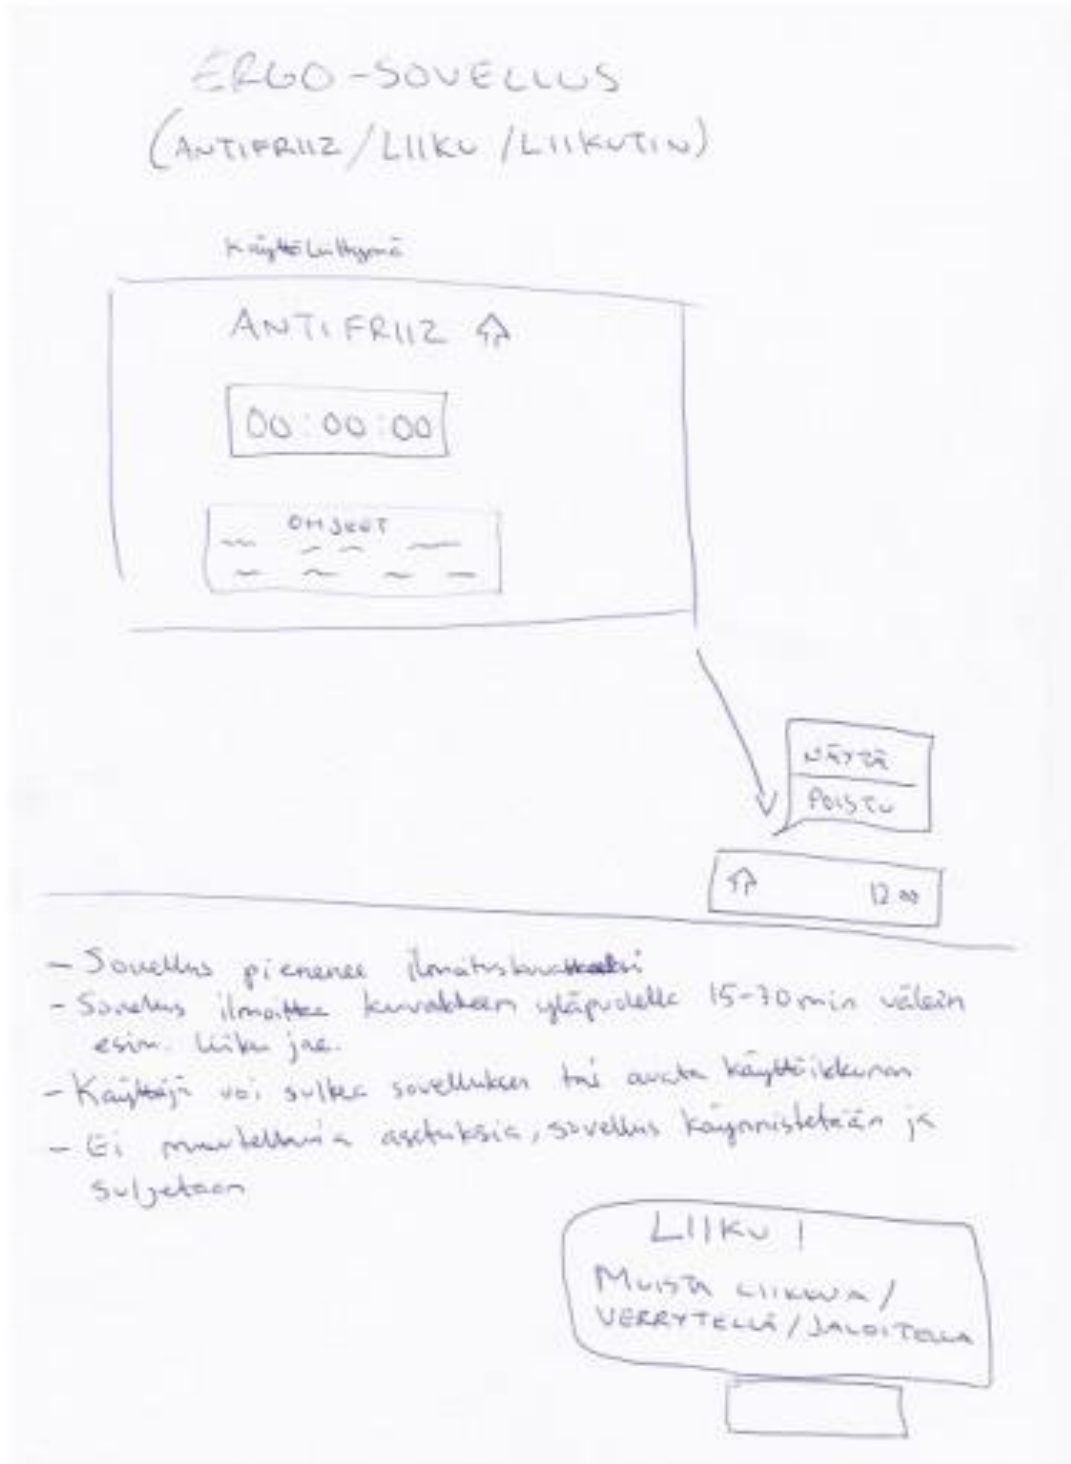 ERGO-SOVELLUS
(ANTIFRIIZ/LIIKU/LIIKUTIN)
Käyttöliittymä
ANTIFRIIZ
00:00:00
OHJEET
NÄYTÄ
POISTU
12 00
- Sovellus pienenee
- Sovellus ilmoittaa kuvakkeen yläpuolelle 15-30 min välein
esim. liiku jne.
- Käyttäjä voi sulkea sovelluksen tai avata käyttöikkunan
- Ei muuteltavia asetuksia, sovellus käynnistetään ja
suljetaan
LIIKU!
MUISTA LIIKKUA/
VERRYTELLÄ/JALOITELLA